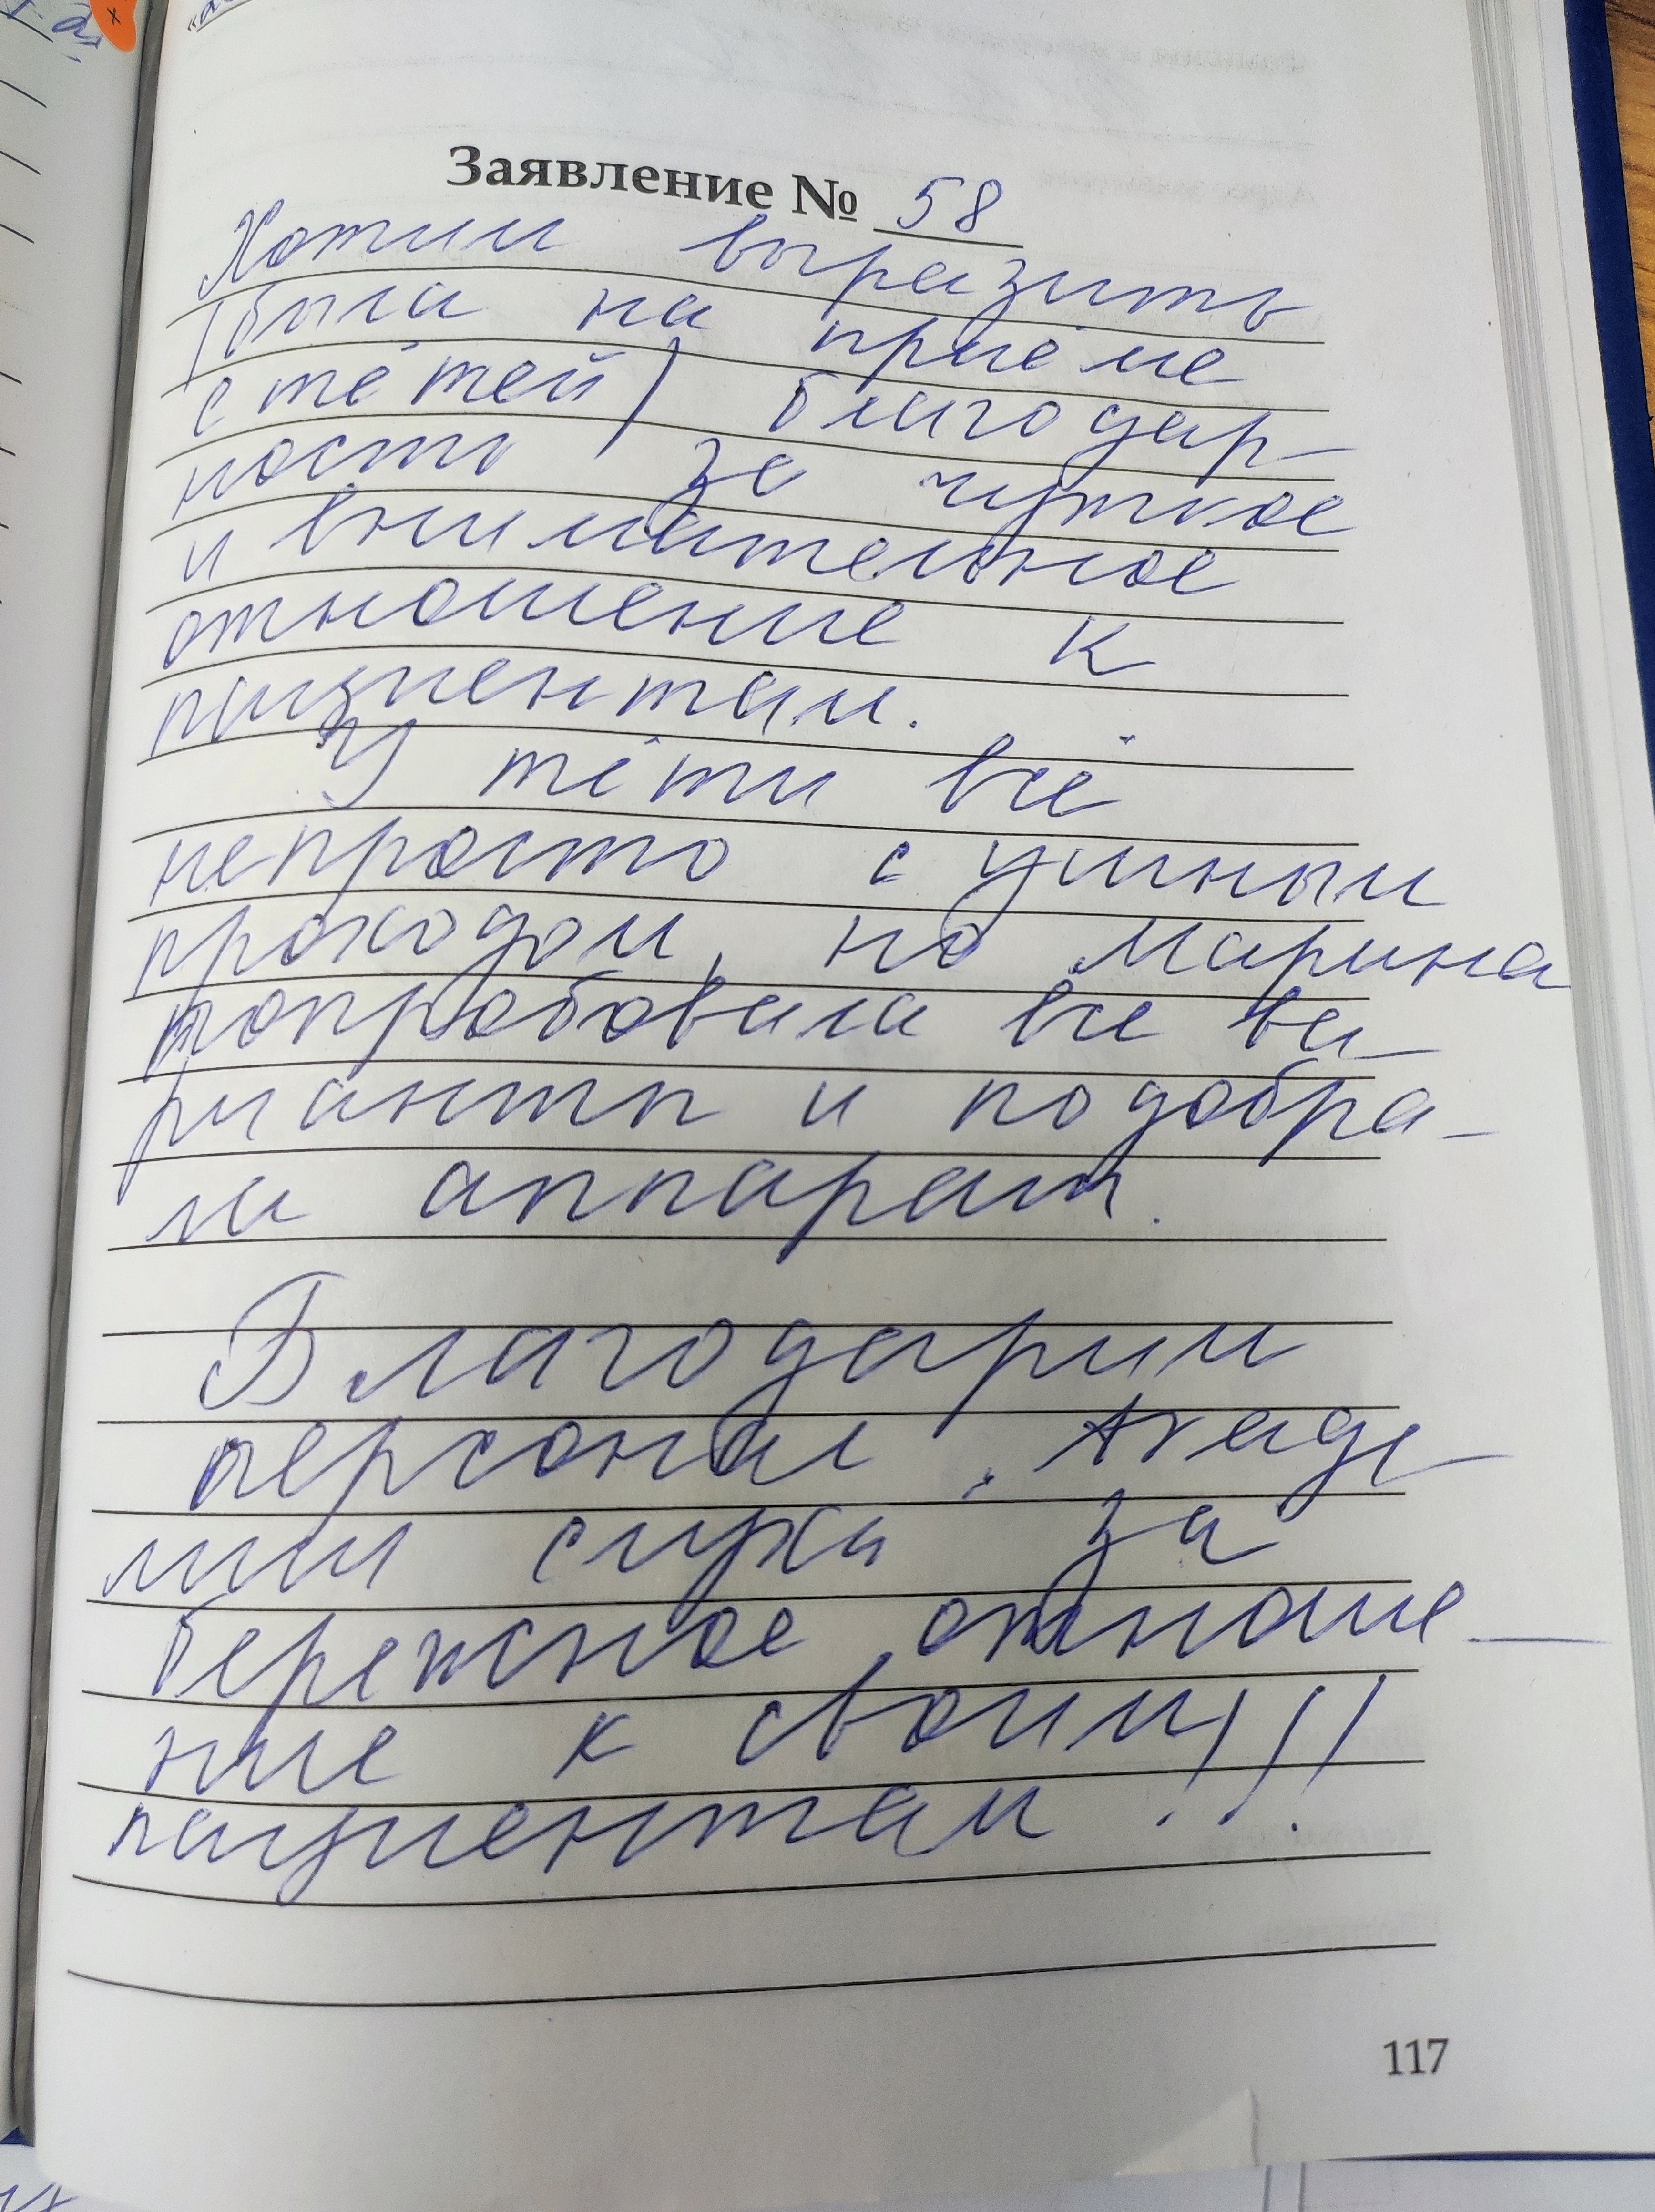 Заявление № 58
Хотим выразить
(была на приёме
с тётей) благодар-
ность за чуткое
и внимательное
отношение к
пациентам.
У тёти всё
непросто с ушным
проходом, но Марина
попробовала все ва-
рианты и подобра-
ла аппарат.
Благодарим
персонал "Акаде-
мии слуха за
бережное отноше-
ние к своим
пациентам!!!
117